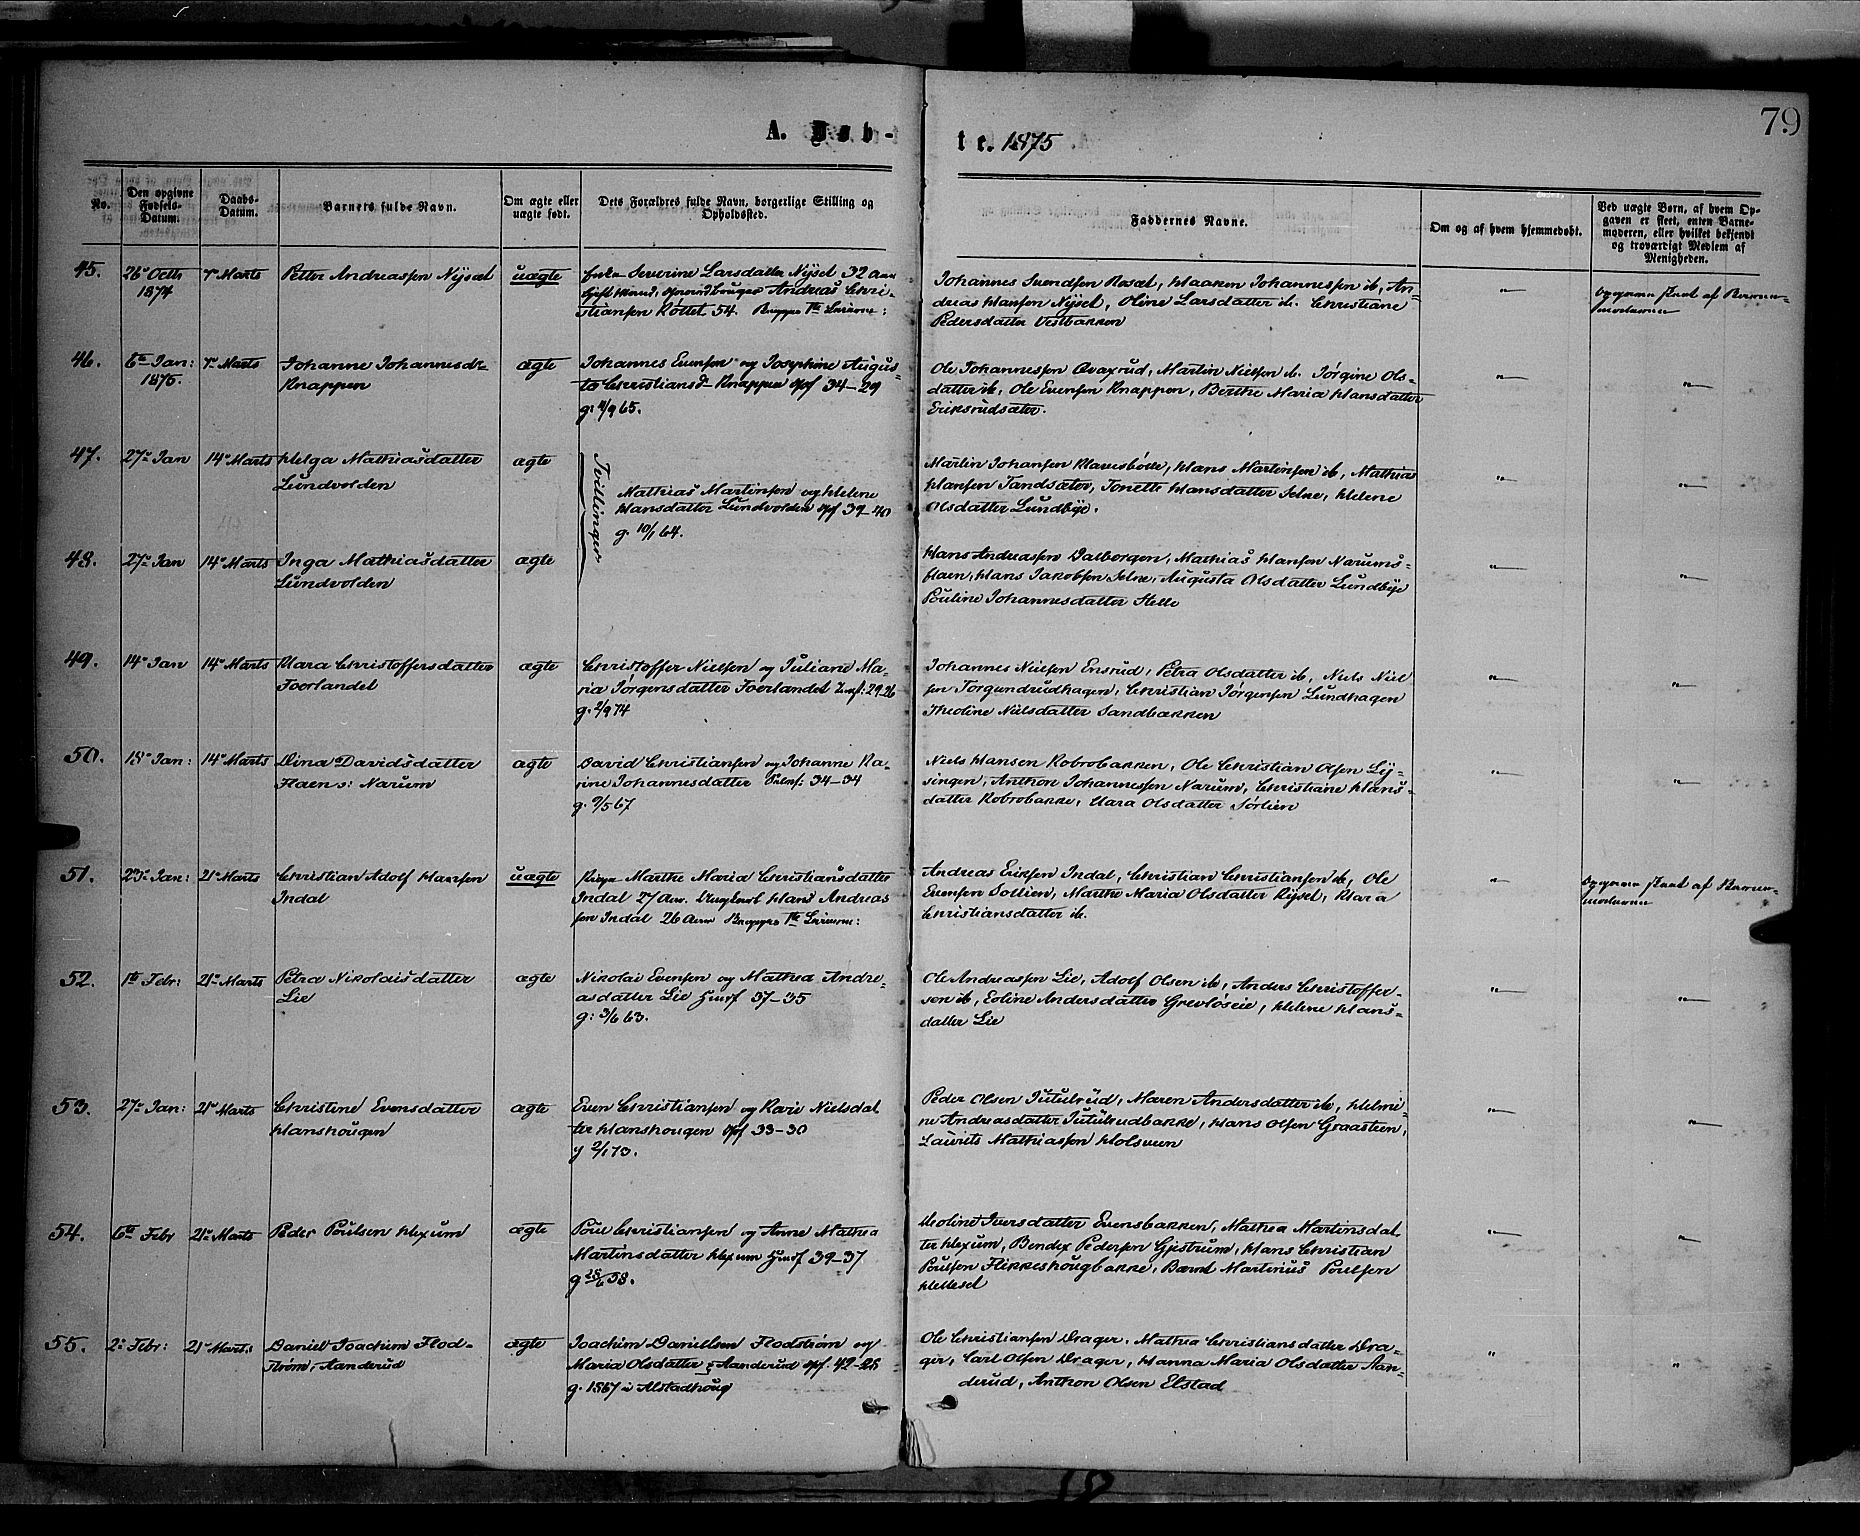 79
A. Døb-
te. 1875
No.
Den opgivne Fødsels-Datum.
Daabs-Datum.
Barnets fulde Navn.
Om ægte eller uægte født.
Dets Forældres fulde Navn, borgerlige Stilling og Opholdsted.
Faddernes Navne.
Om og af hvem hjemmedøbt.
Ved uægte Børn, af hvem Op-
gaven er skeet, enten Barne-
moderen, eller hvilket bekjendt
og troværdigt Medlem af
Menigheden.
45. 26 Octb 1874 7 Marts Petter Andreassen Nysæt uægte
Severine Larsdatter Nyset 32 Aar
Gift Mand, Andreas Chri-
stiansen Røttet 54.
Johannes Svendsen Rosæt, Haaken Johannesen ib, An-
dreas Hansen Nyset, Oline Larsdatter ib. Christiane
Pedersdatter Vestbakken
"
Opgaven skeet af Barne-
moderen
46. 6te Jan: 1875. 7 Marts Johanne Johannesdr
Knappen
ægte
Johannes Evensen og Josephine Augus-
ta Christiansdr Knappen opf 34-29
g. 4/9 65.
Ole Johannesen Qvaxrud, Martin Nielsen ib. Jørgine Ols-
datter ib, Ole Evensen Knappen, Berthe Maria Hansdatter
Eriksrudsæter.
"
"
47. 27 Jan 14 Marts Helga Mathiasdatter
Lundvolden
ægte
Tvillinger
Mathias Martinsen og Helene
Hansdatter Lundvolden opf 39-40
g. 10/1 64.
Martin Johansen Klævesbøle, Hans Martinsen ib, Mathias
Hansen Tandsæter, Tonette Hansdatter Jelne, Helene
Olsdatter Lundbye.
"
"
48. 27 Jan 14 Marts Inga Mathiasdatter
Lundvolden
ægte
Hans Andreassen Dalborgen, Mathias Hansen Narums-
flaen, Hans Jakobsen Jelne, Augusta Olsdatter Lundbye
Pouline Johannesdatter Helle
"
"
49. 14 Jan 14 Marts Klara Christoffersdatter
Foerlandet
ægte
Christoffer Nielsen og Juliane Ma-
ria Jørgensdatter Foerlandet 29.26
g. 2/9 74
Johannes Nielsen Ensrud, Petra Olsdatter ib, Niels Niel
sen Torgundrudhagen, Christian Jørgensen Lundhagen
Theoline Nielsdatter Sandbakken
"
"
50. 18 Jan: 14 Marts Dina Davidsdatter
Flaen s: Narum
ægte
David Christiansen og Johanne Ka-
rine Johannesdatter 34-34
g. 9/5 67
Niels Hansen Kobrobakken, Ole Christian Olsen Ly-
singen, Anthon Johannessen Narum, Christiane Hans-
datter Kobrobakke, Clara Olsdatter Sørlien
"
"
51. 23 Jan: 21 Marts Christian Adolf Hansen
Indal
uægte
Pigen Marthe Maria Christiansdatter
Indal 27 Aar. Ungkarl Hans Andreas
sen Indal 26 Aar
Andreas Eriksen Indal, Christian Christiansen ib, Ole
Evensen Sollien, Marthe Maria Olsdatter Ryset, Klara
Christiansdatter ib.
"
Opgaven skeet af Barne-
moderen
52. 1te Febr: 21 Marts Petra Nikolaisdatter
Lie
ægte
Nikolai Evensen og Mathea Andre-
asdatter Lie Husf 37-35
g: 3/6 63.
Ole Andreassen Lie, Adolf Olsen ib, Anders Christoffer-
sen ib, Eoline Andersdatter Grevløseie, Helene Hans-
datter Lie
"
"
53. 27 Jan: 21 Marts Christine Evensdatter
Hanshougen
ægte
Even Christiansen og Kari Nielsdat
ter Hanshougen opf 33-30
g 2/1 73.
Peder Olsen Jutulrud, Maren Andersdatter ib, Helmi-
ne Andreasdatter Jutulrudbakke, Hans Olsen Graastien,
Laurits Mathiassen Holsveen
"
"
54. 6te Febr 21 Marts Peder Poulsen Hexum
ægte
Poul Christiansen og Anne Mathea
Martinsdatter Hexum Husf 39-37
g 28/6 58.
Meoline Iversdatter Evensbakken, Mathea Martinsdat
ter Hexum, Bendex Pedersen Gjestrum, Hans Christian
Poulsen Flikkeshougbakke, Bernt Martinus Poulsen
Hellesel
"
"
55. 2 Febr: 21 Marts Daniel Joachim Flod-
strøm, Aanderud
ægte
Joachim Danielsen Flodstrøm og
Maria Olsdatter Aanderud opf. 42-25
g. 1867 i Alstadhoug
Ole Christiansen Drager, Mathea Christiansdatter Dra-
ger, Carl Olsen Drager, Hanna Maria Olsdatter Aan-
derud, Anthon Olsen Elstad
"
"